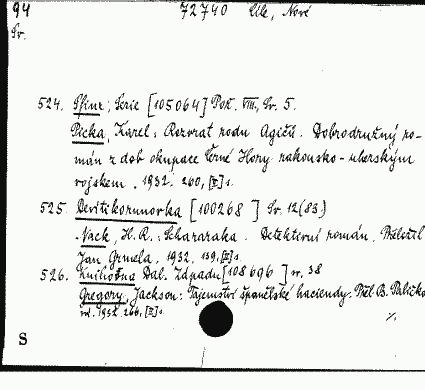 94 72740 Cíle, Nové
Sv.
524. Sfinx; Serie [105064] Poř. VIII, Sv. 5.
Picka, Karel: Rozvrat rodu Agičů. Dobrodružný ro-
mán z dob okupace Černé Hory rakousko-uherským
vojskem. 1932. 260, [V] s.
525. Devítikorunovka [100268 ] Sv. 12(83)
Nack, H.R.: Schararaka. Detektivní román. Přeložil
Jan Grmela. 1932. 139, [V] s.
526. Knihovna Dal. Západu [108696 ] sv. 38
Gregory, Jackson: Tajemství španělské haciendy. Přel. B.
vd. 1932. 266, [V] s.
S